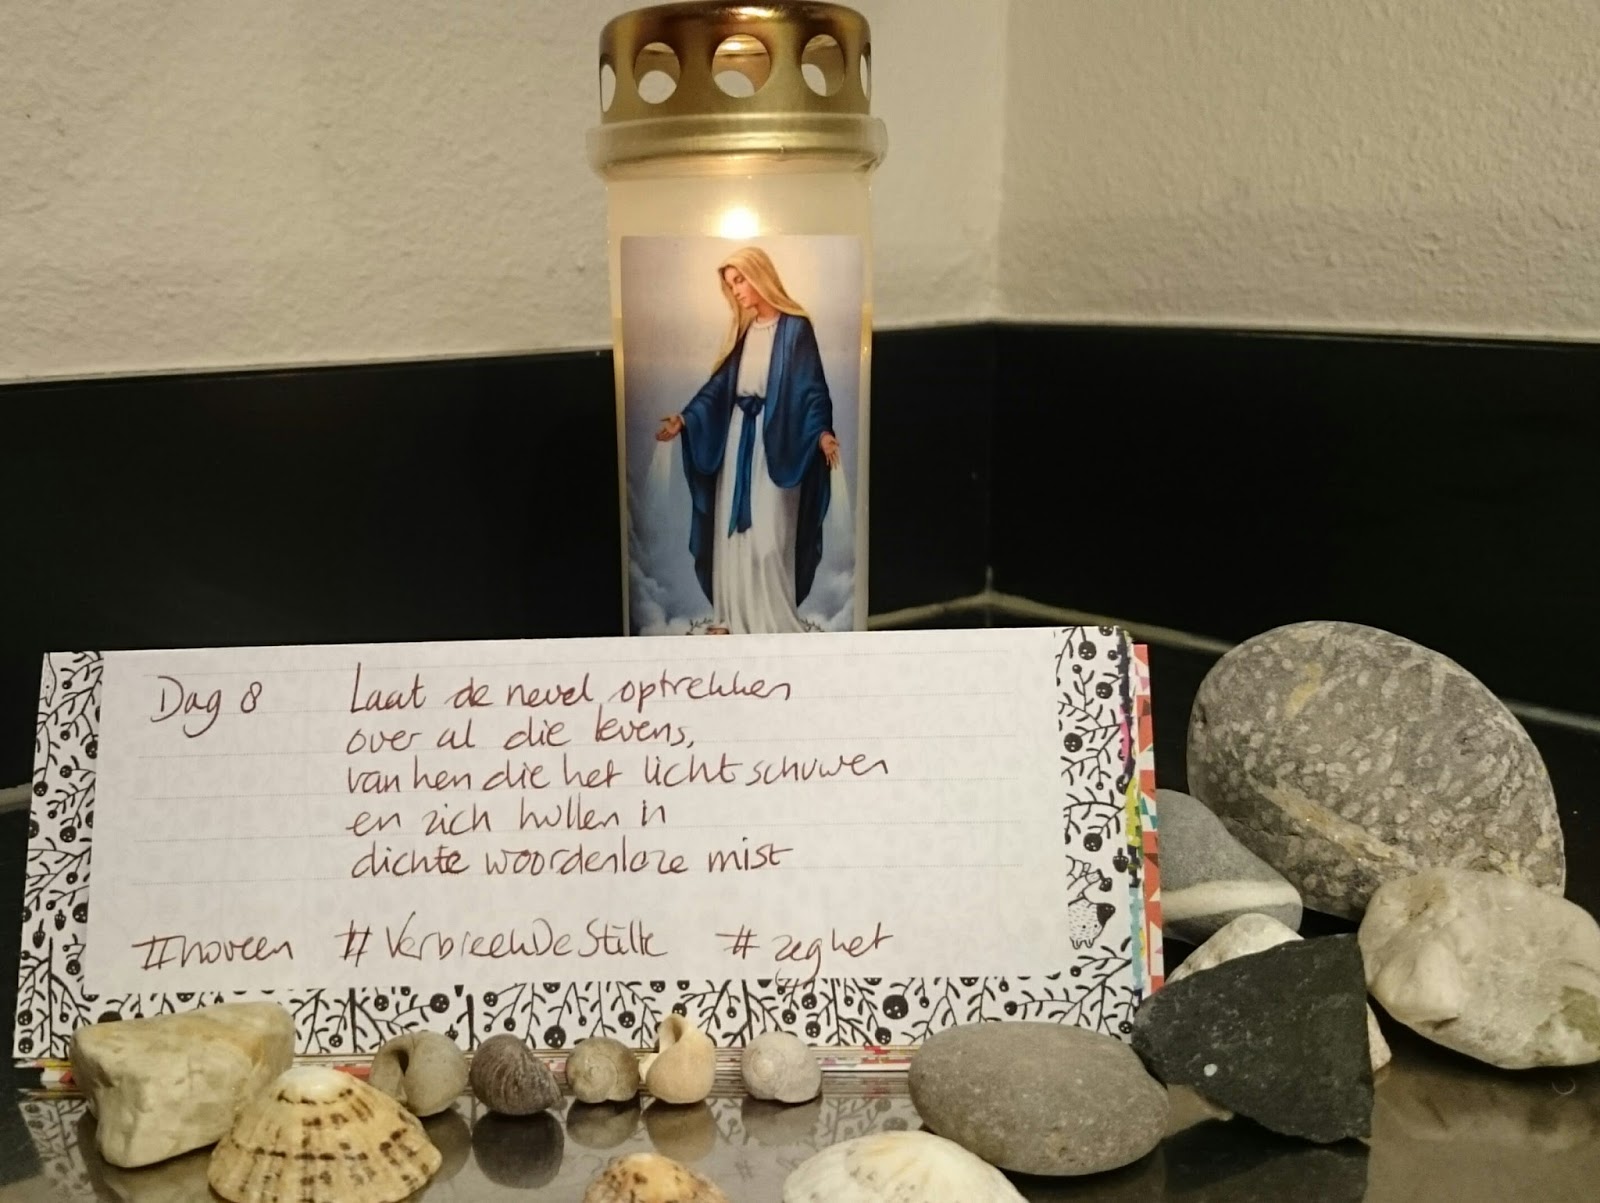 Dag 8
Laat de nevel optrekken
over al die levens,
van hen die het licht schuwen
en zich hullen in
dichte woordenloze mist
#noveen #VerbreekDeStilte #zeghet